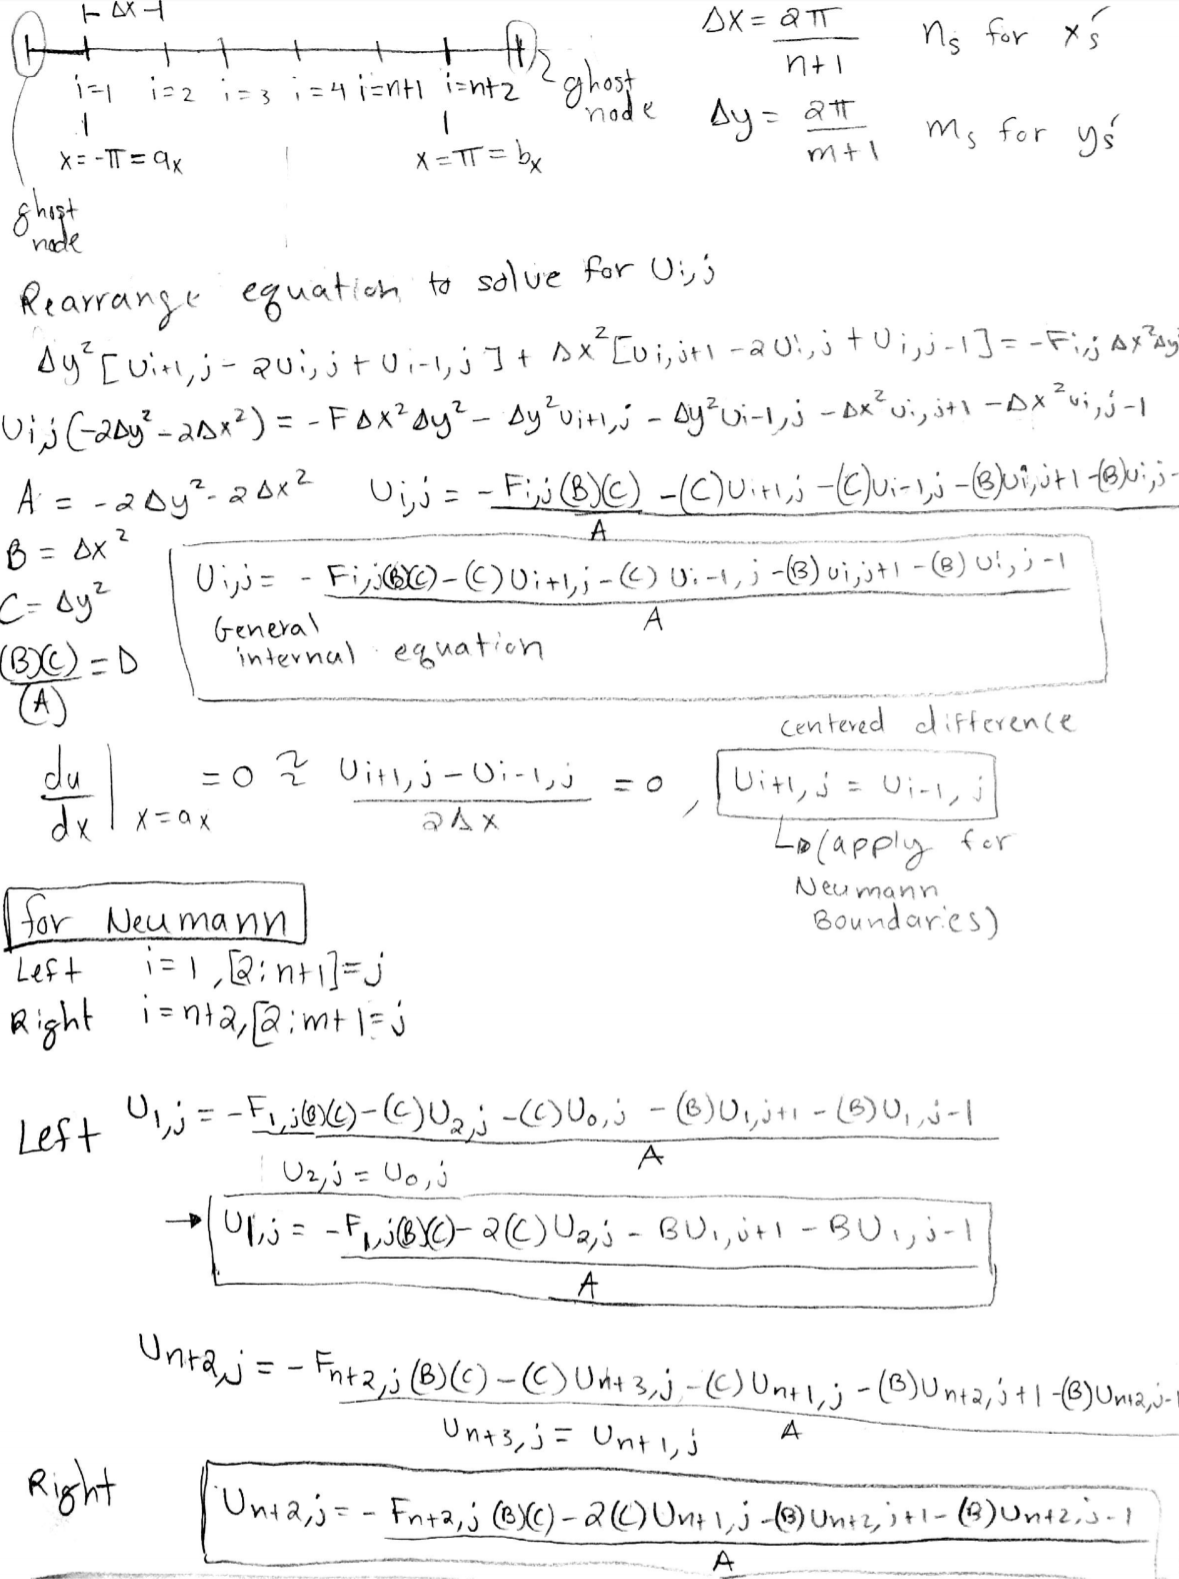 ⊢ Δx ⊣
Δx = 2π / n+1 ns for x's
i=1 i=2 i=3 i=4 i=n+1 i=n+2 ghost node
Δy = 2π / m+1 ms for y's
x=-π=ax x=π=bx
ghost node
Rearrange equation to solve for Ui,j
Δy²[Ui+1,j - 2Ui,j + Ui-1,j] + Δx²[Ui,j+1 - 2Ui,j + Ui,j-1] = -Fi,j Δx²Δy
Ui,j(-2Δy²-2Δx²) = -FΔx²Δy² - Δy²Ui+1,j - Δy²Ui-1,j - Δx²Ui,j+1 - Δx²Ui,j-1
A = -2Δy²-2Δx² Ui,j = -Fi,j(B)(C) -(C)Ui+1,j -(C)Ui-1,j -(B)Ui,j+1 -(B)Ui,j- / A
B = Δx²
Ui,j = -Fi,j(B)(C) -(C)Ui+1,j -(C)Ui-1,j -(B)Ui,j+1 -(B)Ui,j-1 / A
C = Δy²
General
internal equation
(B)(C) / (A) = D
centered difference
du/dx | x=ax = 0 ≈ Ui+1,j - Ui-1,j / 2Δx = 0, Ui+1,j = Ui-1,j
↳(apply for
Neumann
Boundaries)
for Neumann
Left i=1,[2:n+1]=j
Right i=n+2,[2:m+1=j
Left U1,j = -F1,j(B)(C) -(C)U2,j -(C)U0,j -(B)U1,j+1 -(B)U1,j-1 / A
U2,j = U0,j
→ U1,j = -F1,j(B)(C) - 2(C)U2,j - BU1,j+1 - BU1,j-1 / A
Un+2,j = -Fn+2,j(B)(C) -(C)Un+3,j -(C)Un+1,j -(B)Un+2,j+1 -(B)Un+2,j-1 / A
Un+3,j = Un+1,j
Right Un+2,j = -Fn+2,j(B)(C) - 2(C)Un+1,j -(B)Un+2,j+1 -(B)Un+2,j-1 / A